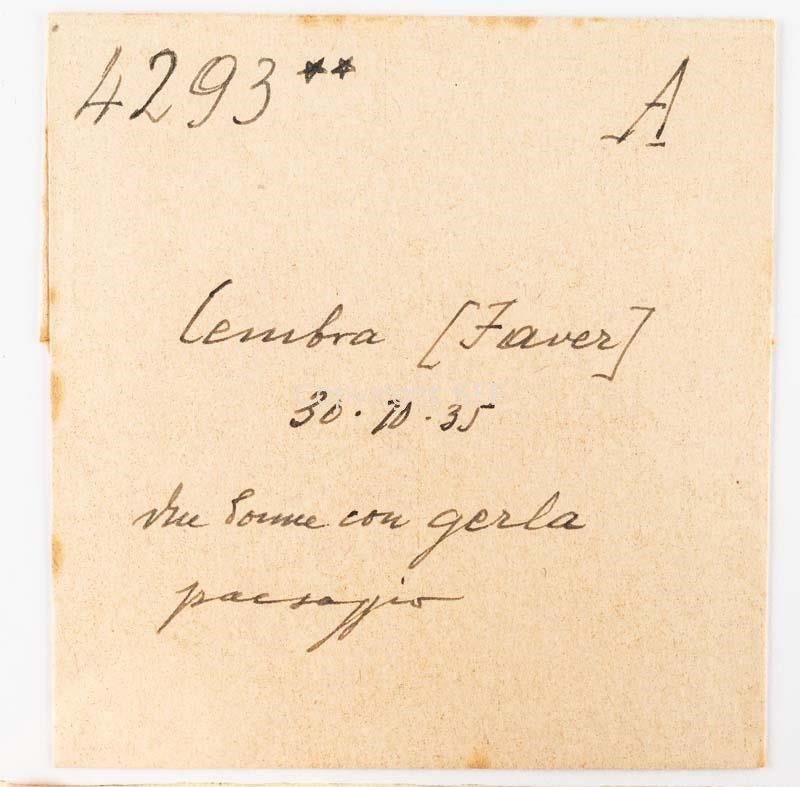 4293** A
Cembra [Faver]
30.10.35
due donne con gerla
paesaggio